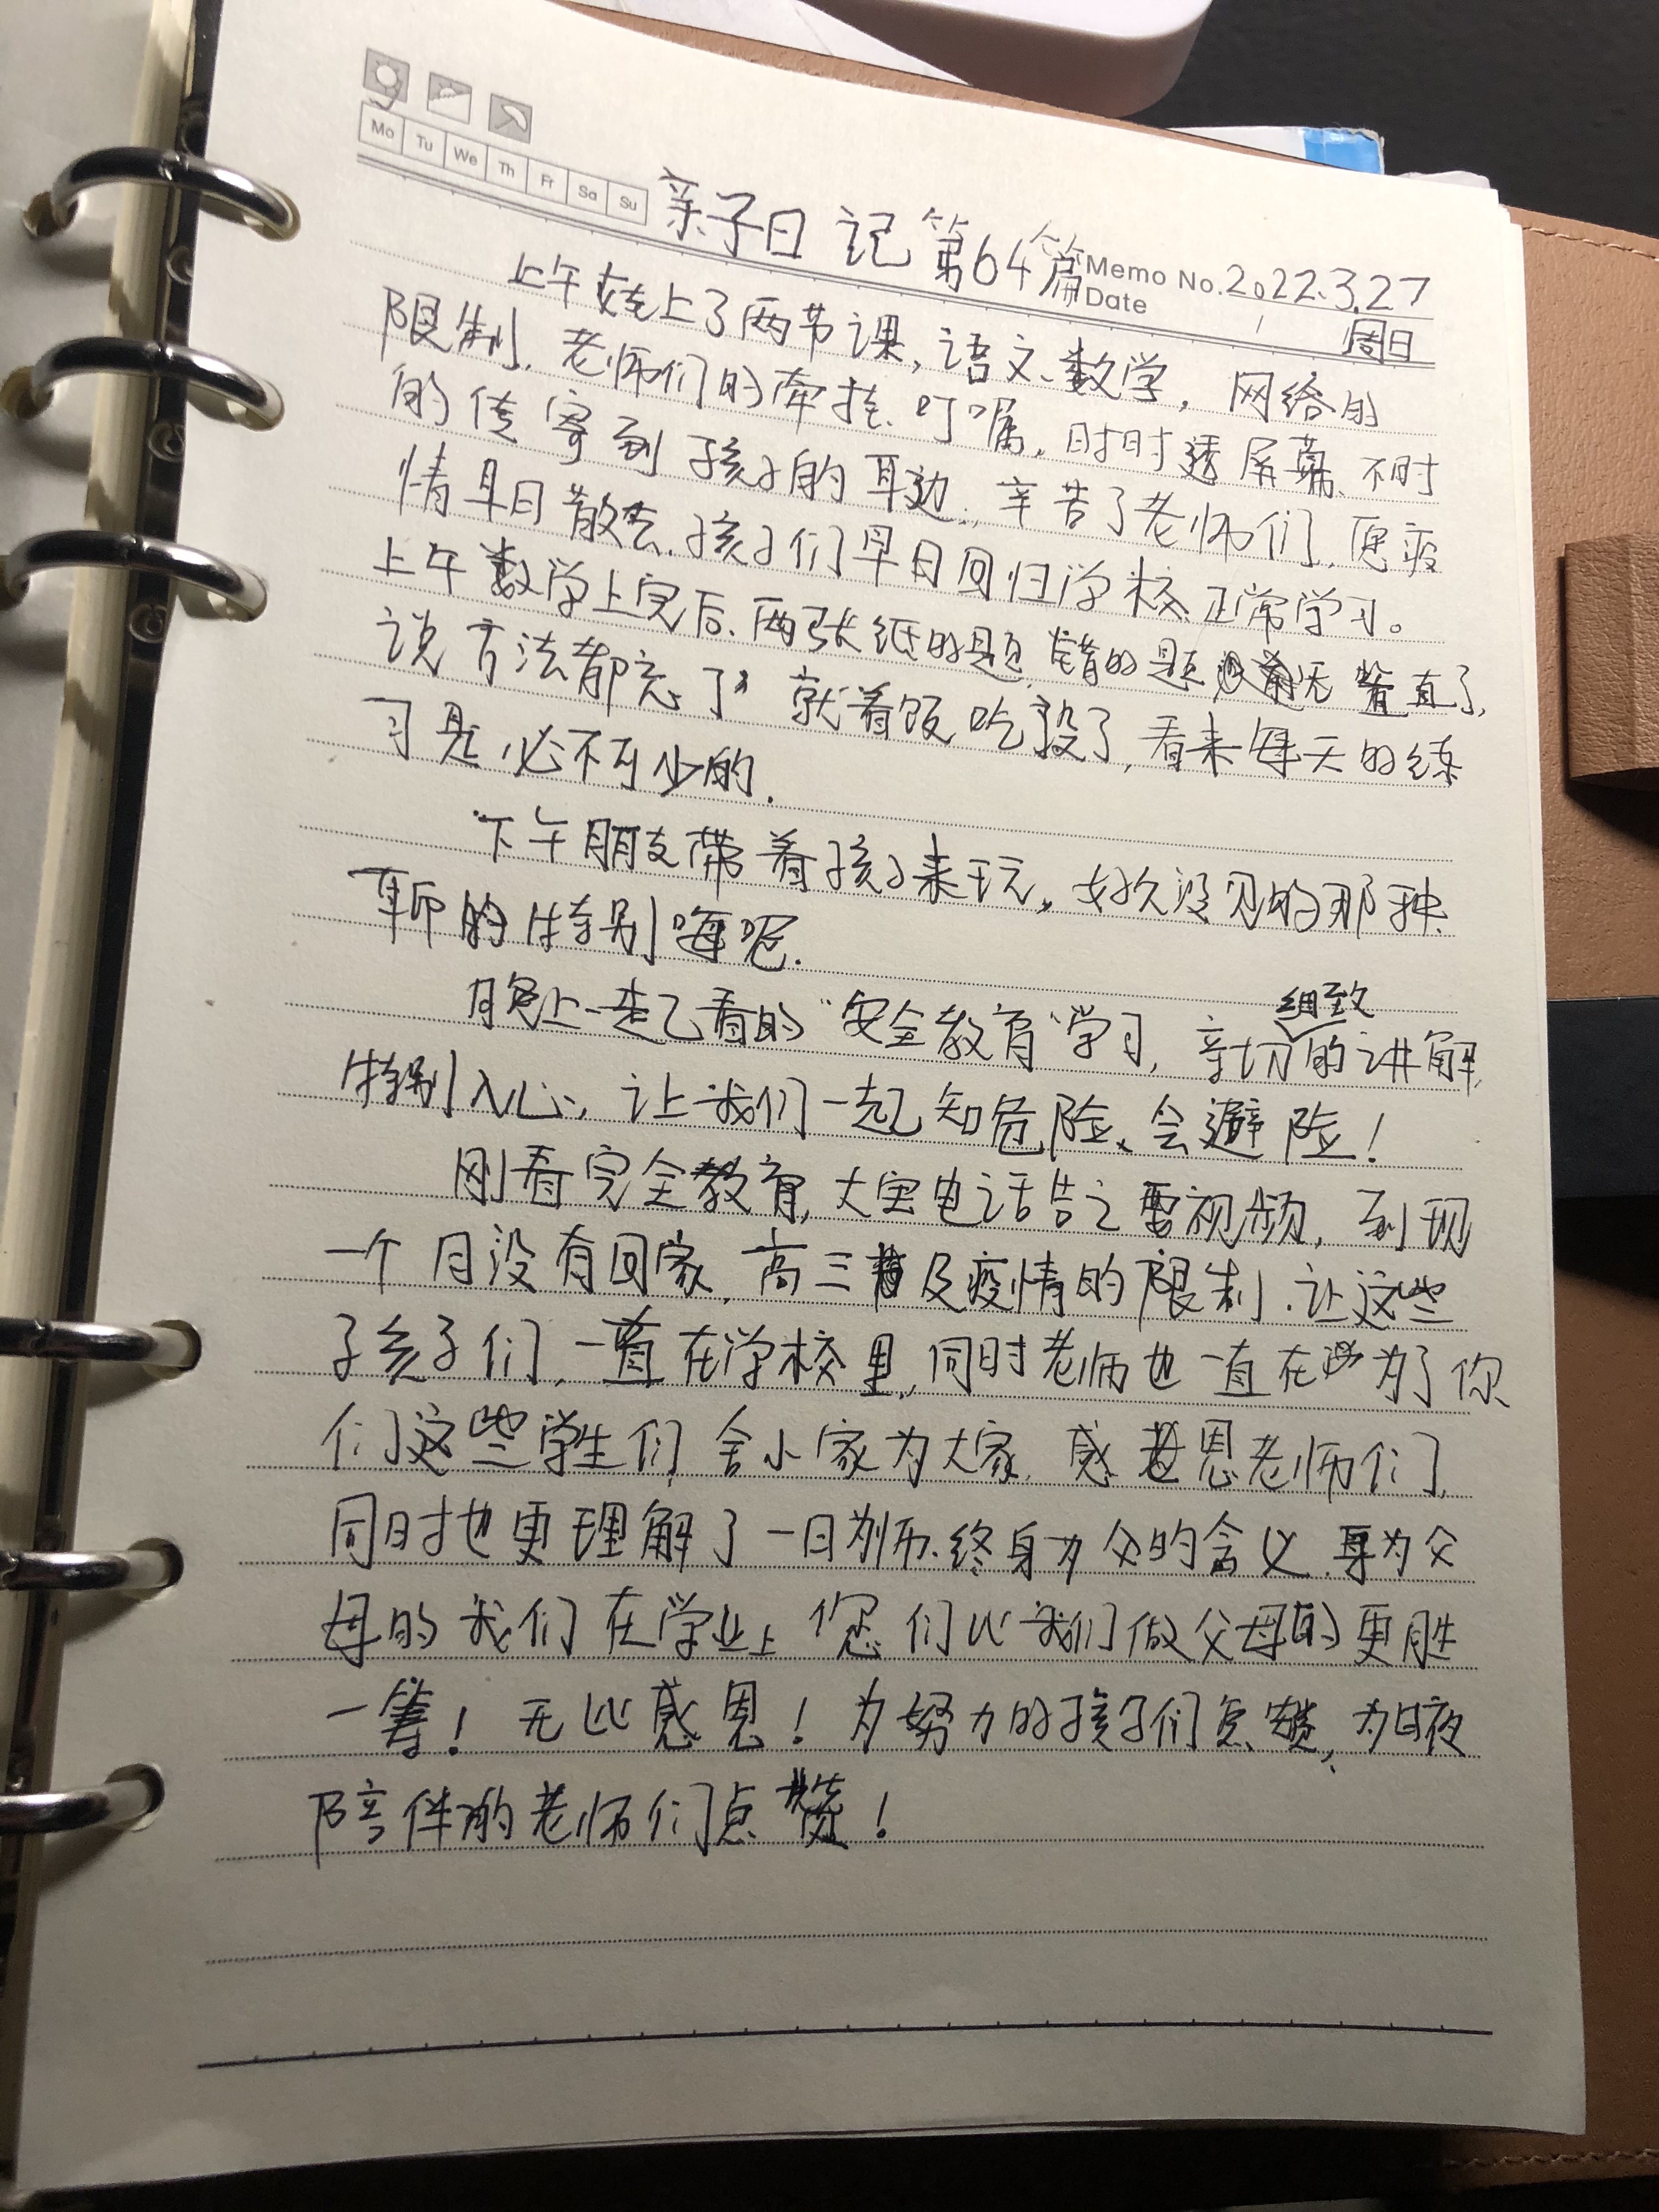 Mo Tu We Th Fr Sa Su
亲子日记第64篇
Memo No. 2022.3.27
Date 周日
上午娃上了两节课，语文、数学，网络的
限制，老师们的牵挂、叮嘱，时时透屏幕、不时
的传寄到孩子的耳边，辛苦了老师们，愿疫
情早日散去，孩子们早日回归学校、正常学习。
上午数学上完后、两张纸的题，错的题 直了，
说方法都忘了，就着饭吃没了，看来每天的练
习是必不可少的.
下午朋友带着孩子来玩，好久没见的那种、
聊的特别嗨呢.
晚上一起看的“安全教育”学习，亲切细致的讲解，
特别入心，让我们一起知危险、会避险！
刚看完全教育，大宝电话告之要视频，到现
一个月没有回家，高三及疫情的限制，让这些
子孩子们，一直在学校里，同时老师也一直在为了你
们这些学生们舍小家为大家，感恩老师们，
同时也更理解了一日为师、终身为父的含义，身为父
母的我们在学业上您们比我们做父母的更胜
一筹！无比感恩！为努力的孩子们点赞，为日夜
陪伴的老师们点赞！